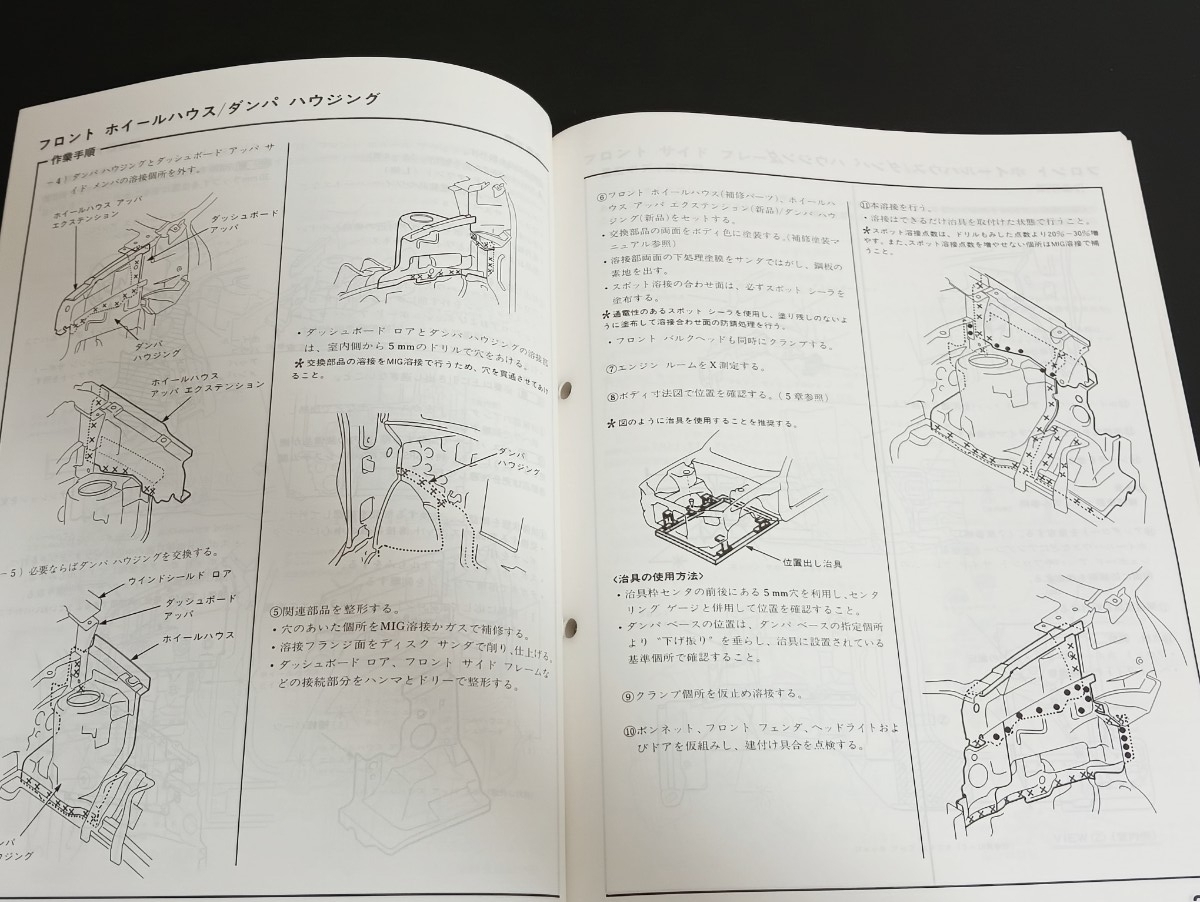 フロント ホイールハウス/ダンパ ハウジング
作業手順
-4) ダンパ ハウジングとダッシュボード アッパ サ
イド メンバの溶接個所を外す。
ホイールハウス アッパ
エクステンション
ダッシュボード
アッパ
ダンパ
ハウジング
ホイールハウス
アッパ エクステンション
-5) 必要ならばダンパ ハウジングを交換する。
ウインドシールド ロア
ダッシュボード
アッパ
ホイールハウス
ンパ
ウジング
・ダッシュボード ロアとダンパ ハウジングの溶接部
は、室内側から5mmのドリルで穴をあける。
*交換部品の溶接をMIG溶接で行うため、穴を貫通させてあけ
ること。
ダンパ
ハウジング
⑤関連部品を整形する。
・穴のあいた個所をMIG溶接かガスで補修する。
・溶接フランジ面をディスク サンダで削り、仕上げる。
・ダッシュボード ロア、フロント サイド フレームな
どの接続部分をハンマとドリーで整形する。
⑥フロント ホイールハウス(補修パーツ)、ホイールハ
ウス アッパ エクステンション(新品)/ダンパ ハウ
ジング(新品)をセットする。
・交換部品の両面をボディ色に塗装する。(補修塗装マ
ニュアル参照)
・溶接部両面の下処理塗膜をサンダではがし、鋼板の
素地を出す。
・スポット溶接の合わせ面は、必ずスポット シーラを
塗布する。
*通電性のあるスポット シーラを使用し、塗り残しのないよ
うに塗布して溶接合わせ面の防錆処理を行う。
・フロント バルクヘッドも同時にクランプする。
⑦エンジン ルームをX測定する。
⑧ボディ寸法図で位置を確認する。(5章参照)
*図のように治具を使用することを推奨する。
位置出し治具
〈治具の使用方法〉
・治具枠センタの前後にある5mm穴を利用し、センタ
リング ゲージと併用して位置を確認すること。
・ダンパ ベースの位置は、ダンパ ベースの指定個所
より"下げ振り"を垂らし、治具に設置されている
基準個所で確認すること。
⑨クランプ個所を仮止め溶接する。
⑩ボンネット、フロント フェンダ、ヘッドライトおよ
びドアを仮組みし、建付け具合を点検する。
⑪本溶接を行う。
・溶接はできるだけ治具を取付けた状態で行うこと。
*スポット溶接点数は、ドリルもみした点数より20%~30%増
やす。また、スポット溶接点数を増やせない個所はMIG溶接で補
うこと。